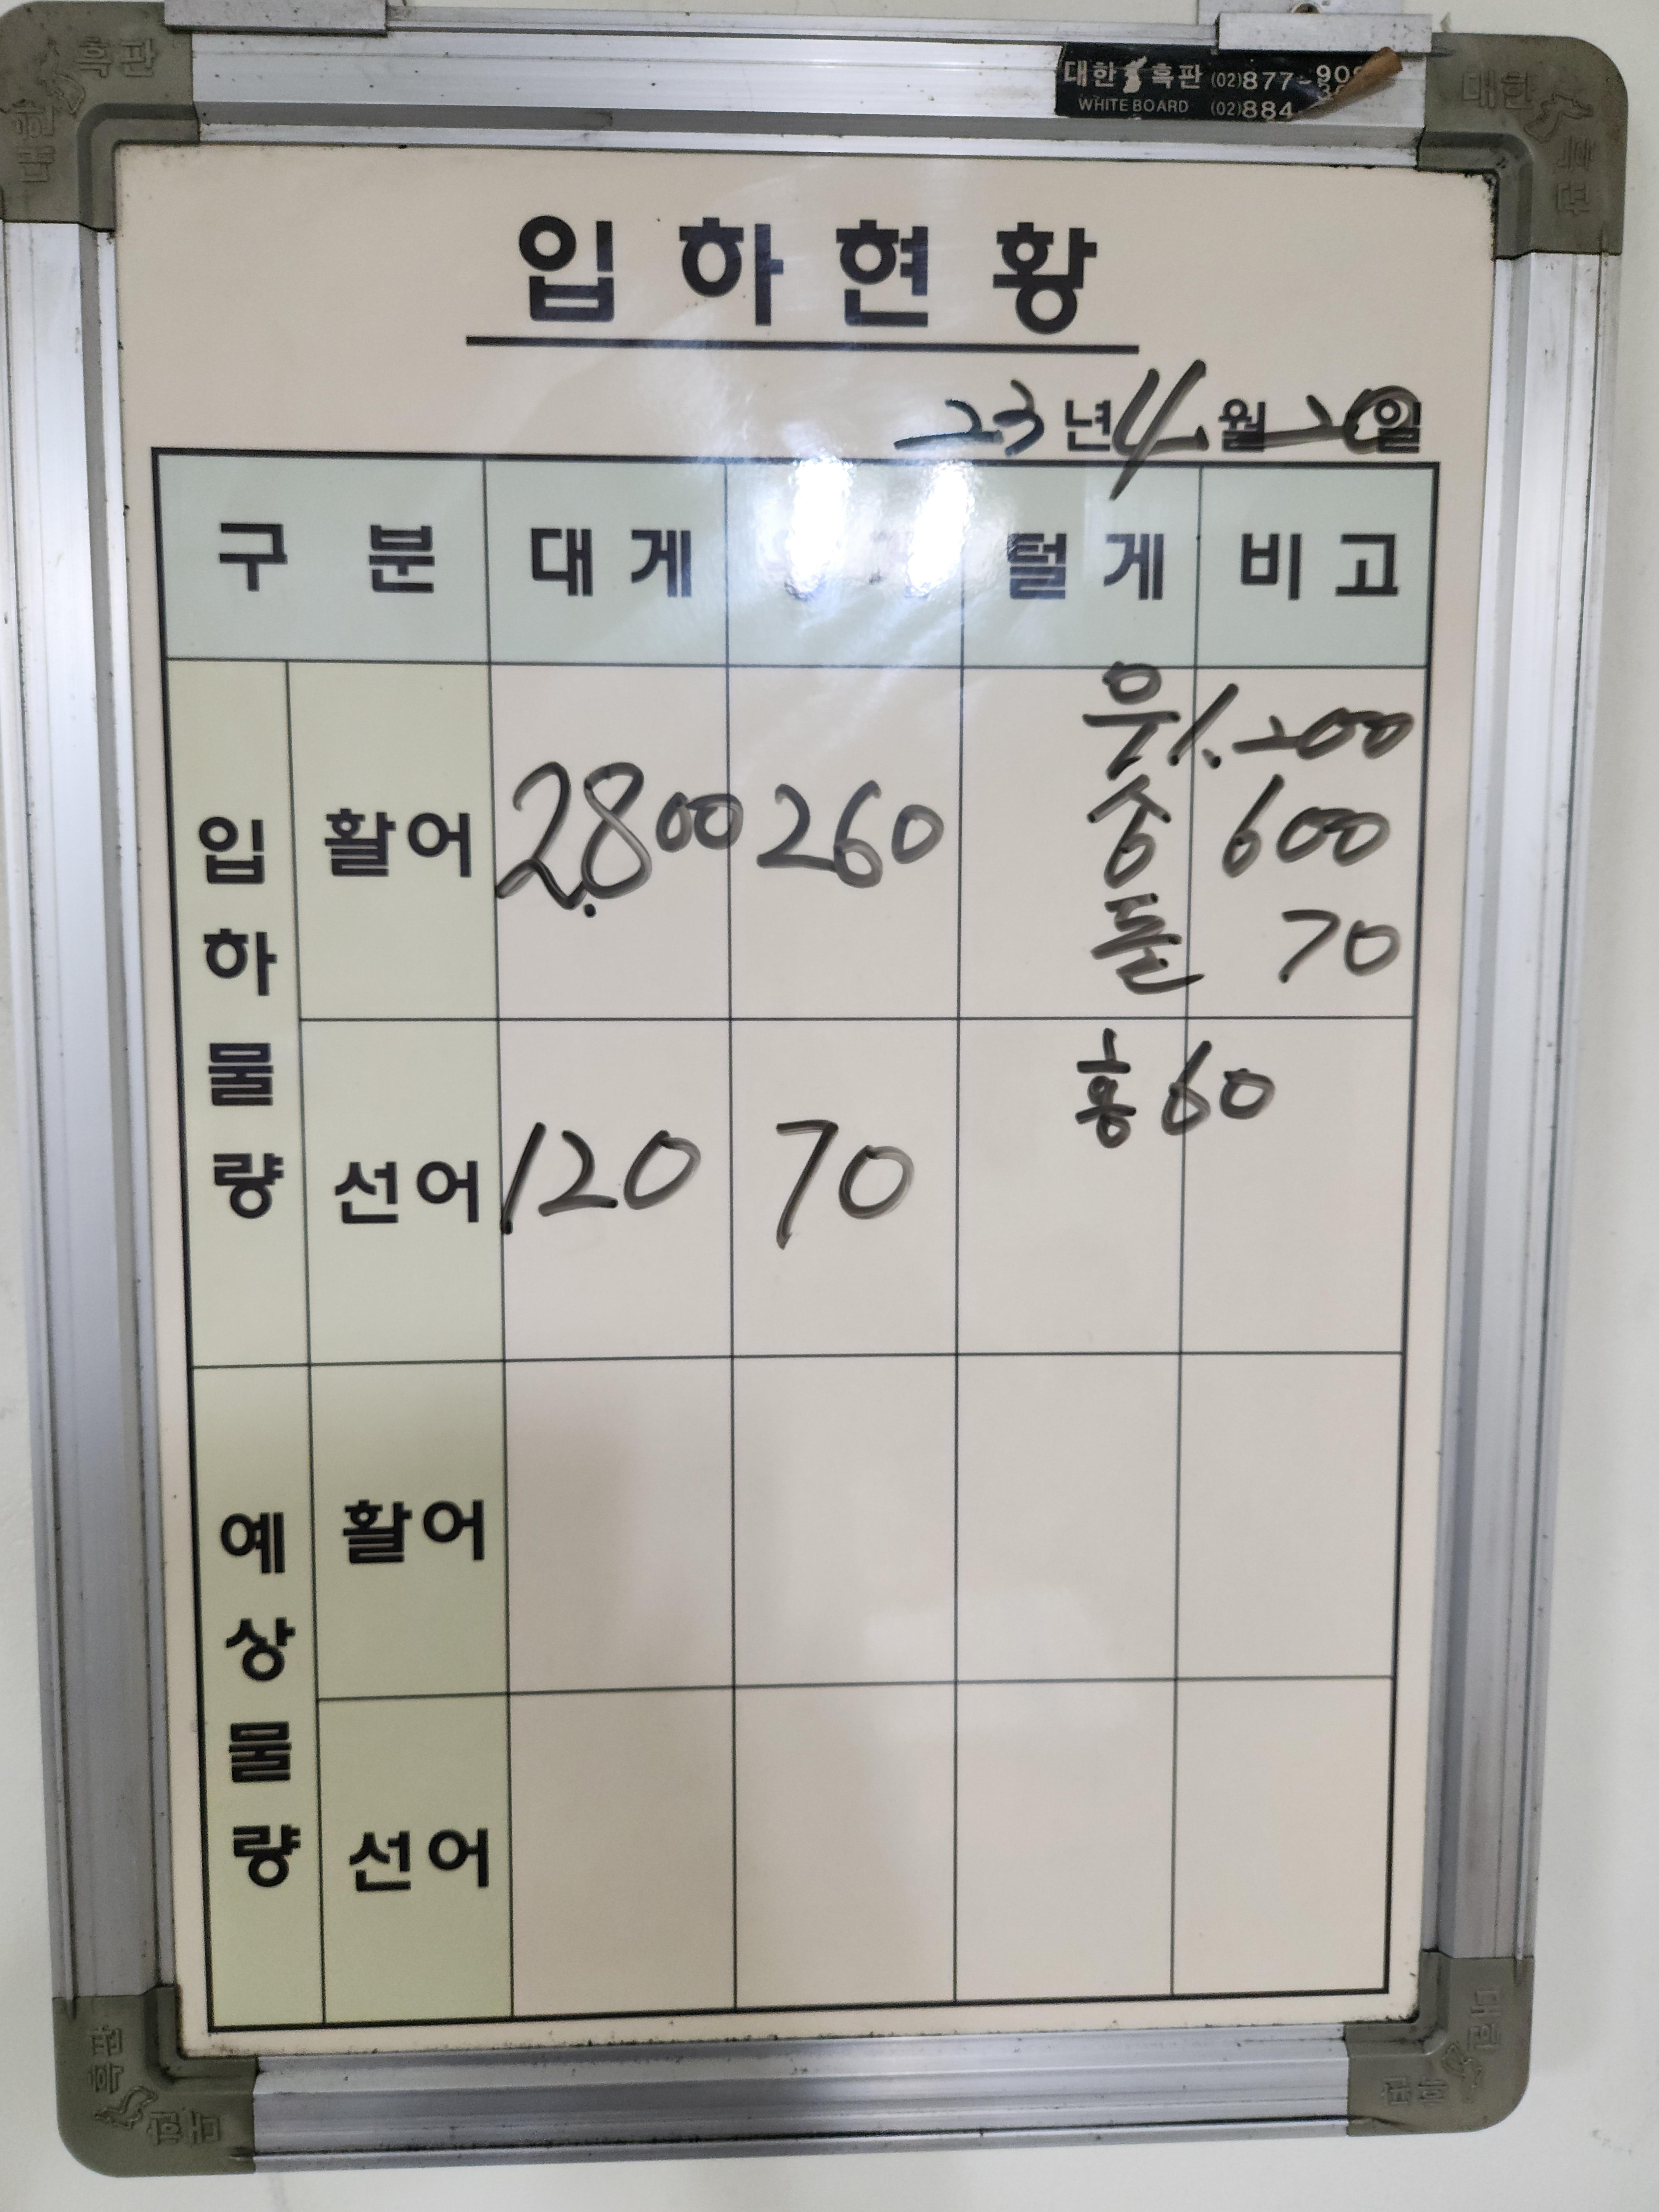 대한 흑판 (02)877-90
WHITE BOARD (02)884
입하현황
23년 4월 20일
구분 대게 털게 비고
입하물량
활어 2.800 260
웃 1.200
숭 600
돌 70
선어 120 70 홍 60
예상물량
활어
선어